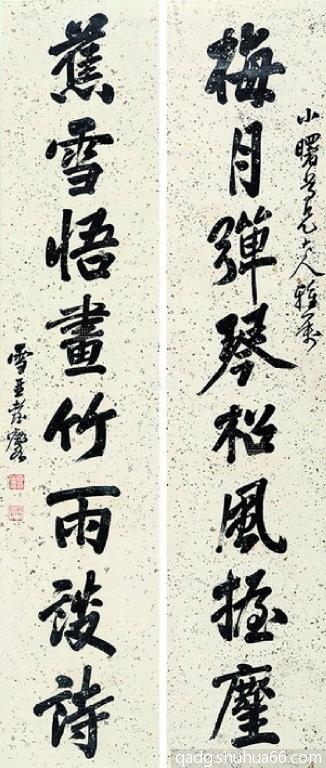 小曙兄大人雅屬
梅月彈琴松風握麈
蕉雪悟畫竹雨談詩
雪
qadg.shuhua66.com